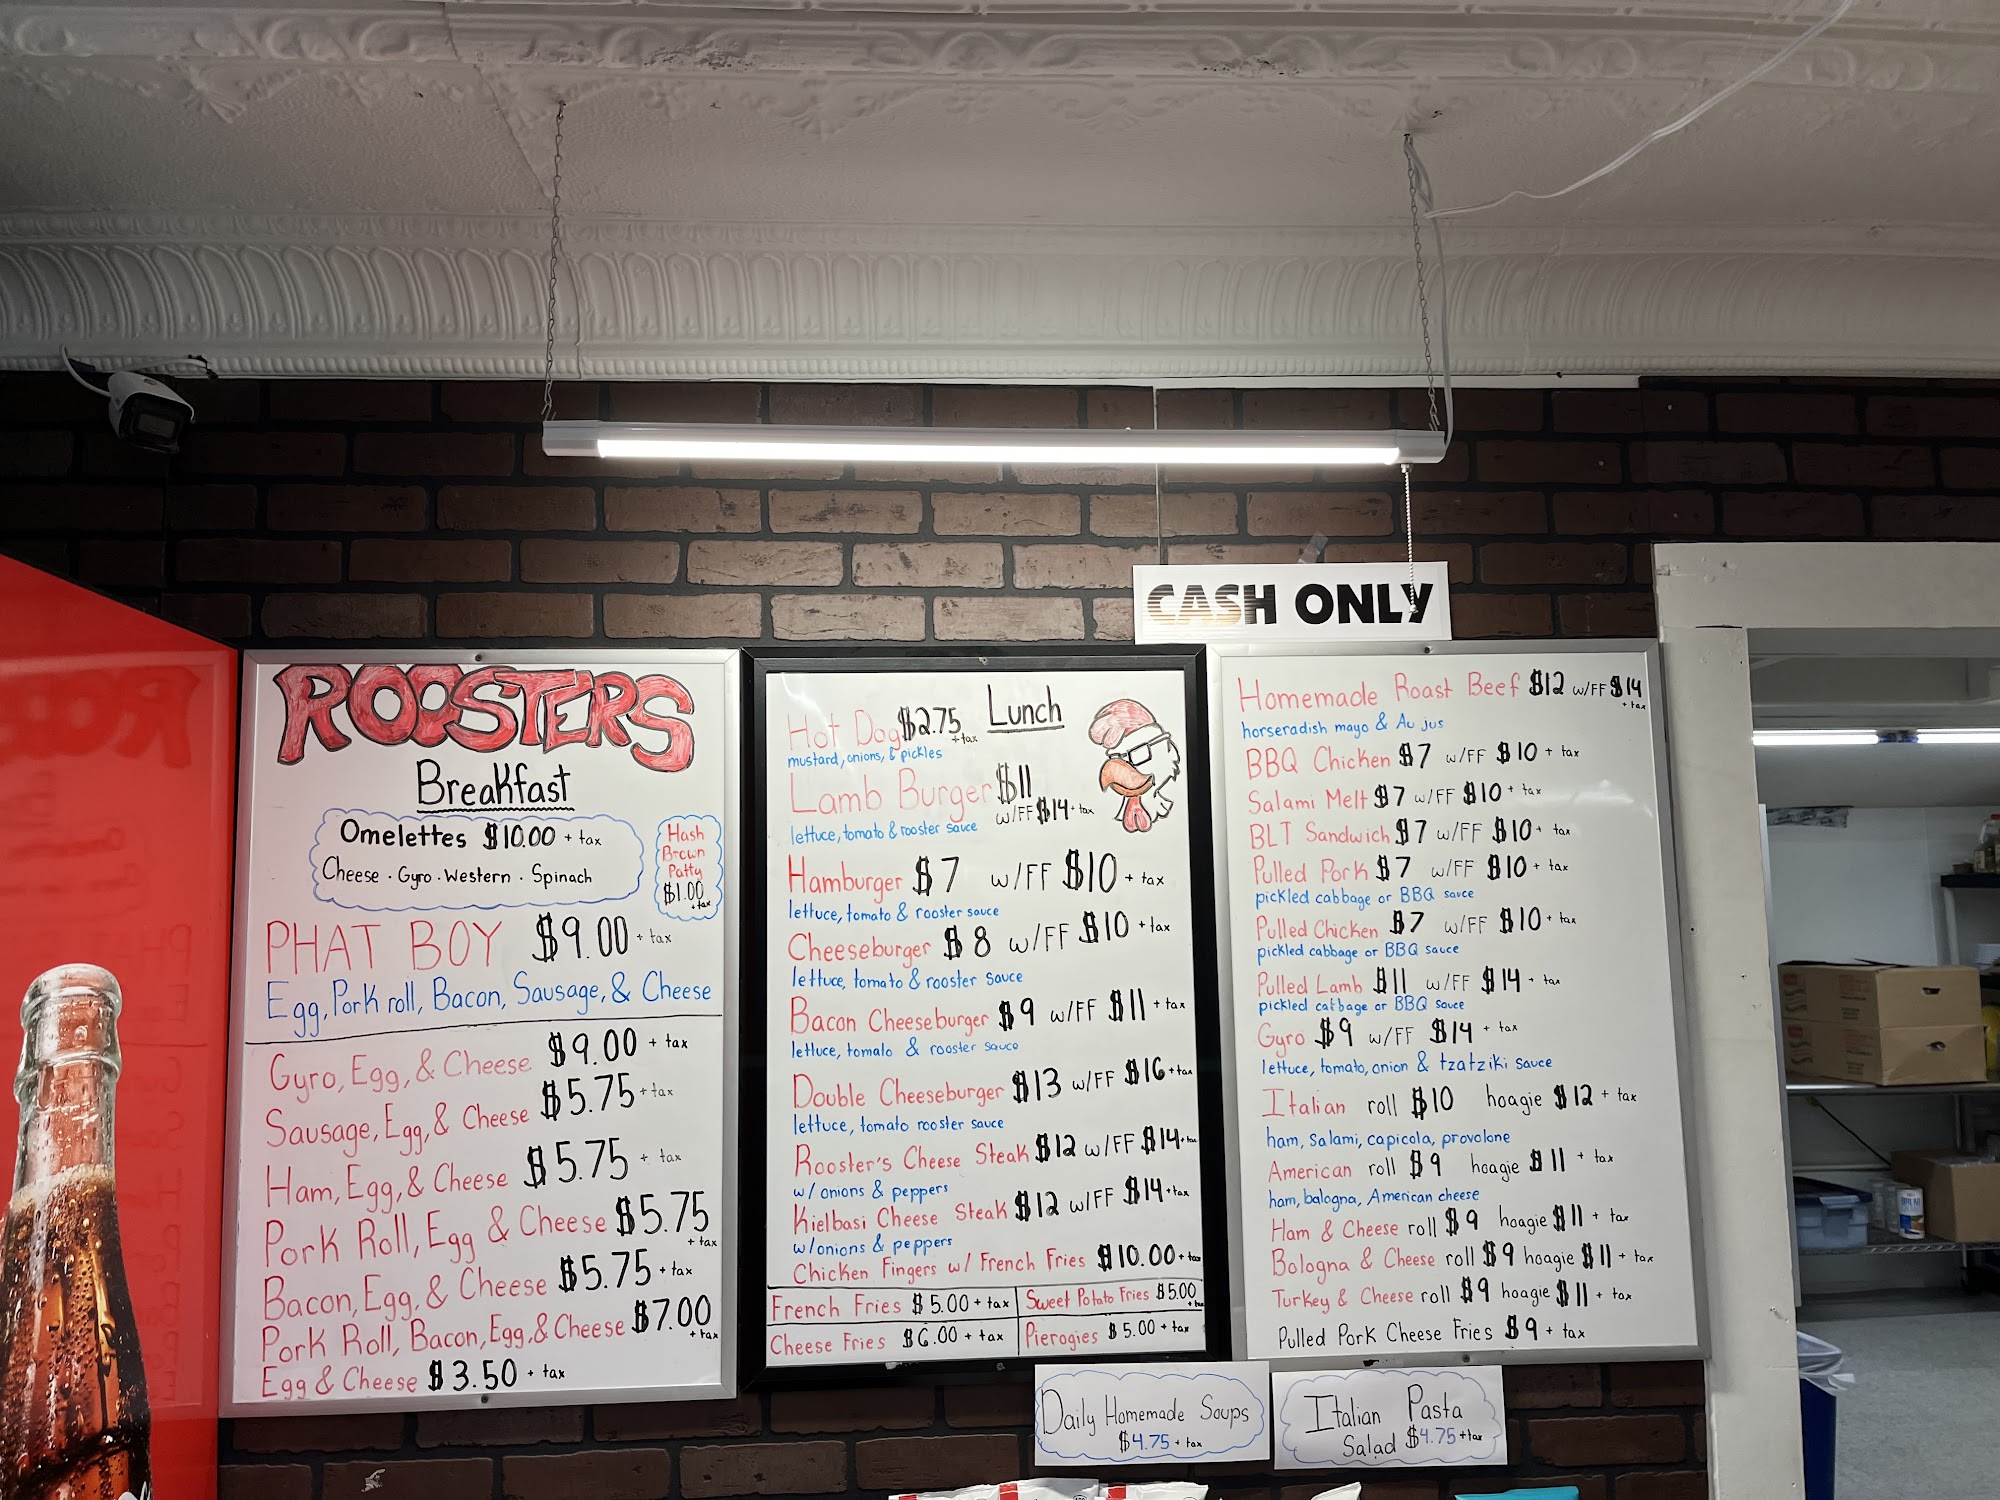 CASH ONLY
ROOSTERS
Breakfast
Omelettes $10.00 + tax
Cheese · Gyro · Western · Spinach
Hash
Brown
Patty
$1.00
+ tax
PHAT BOY $9.00 + tax
Egg, Pork roll, Bacon, Sausage, & Cheese
Gyro, Egg, & Cheese $9.00 + tax
Sausage, Egg, & Cheese $5.75 + tax
Ham, Egg, & Cheese $5.75 + tax
Pork Roll, Egg & Cheese $5.75 + tax
Bacon, Egg, & Cheese $5.75 + tax
Pork Roll, Bacon, Egg, & Cheese $7.00 + tax
Egg & Cheese $3.50 + tax
Lunch
Hot Dog $2.75 + tax
mustard, onions, & pickles
Lamb Burger $11
w/FF $14 + tax
lettuce, tomato & rooster sauce
Hamburger $7 w/FF $10 + tax
lettuce, tomato & rooster sauce
Cheeseburger $8 w/FF $10 + tax
lettuce, tomato & rooster sauce
Bacon Cheeseburger $9 w/FF $11 + tax
lettuce, tomato & rooster sauce
Double Cheeseburger $13 w/FF $16 + tax
lettuce, tomato rooster sauce
Rooster's Cheese Steak $12 w/FF $14 + tax
w/ onions & peppers
Kielbasi Cheese Steak $12 w/FF $14 + tax
w/onions & peppers
Chicken Fingers w/ French Fries $10.00 + tax
French Fries $5.00 + tax
Sweet Potato Fries $5.00 + tax
Cheese Fries $6.00 + tax
Pierogies $5.00 + tax
Homemade Roast Beef $12 w/FF $14 + tax
horseradish mayo & Au jus
BBQ Chicken $7 w/FF $10 + tax
Salami Melt $7 w/FF $10 + tax
BLT Sandwich $7 w/FF $10 + tax
Pulled Pork $7 w/FF $10 + tax
pickled cabbage or BBQ sauce
Pulled Chicken $7 w/FF $10 + tax
pickled cabbage or BBQ sauce
Pulled Lamb $11 w/FF $14 + tax
pickled cabbage or BBQ sauce
Gyro $9 w/FF $14 + tax
lettuce, tomato, onion & tzatziki sauce
Italian roll $10 hoagie $12 + tax
ham, salami, capicola, provolone
American roll $9 hoagie $11 + tax
ham, bologna, American cheese
Ham & Cheese roll $9 hoagie $11 + tax
Bologna & Cheese roll $9 hoagie $11 + tax
Turkey & Cheese roll $9 hoagie $11 + tax
Pulled Pork Cheese Fries $9 + tax
Daily Homemade Soups
$4.75 + tax
Italian Pasta
Salad $4.75 + tax